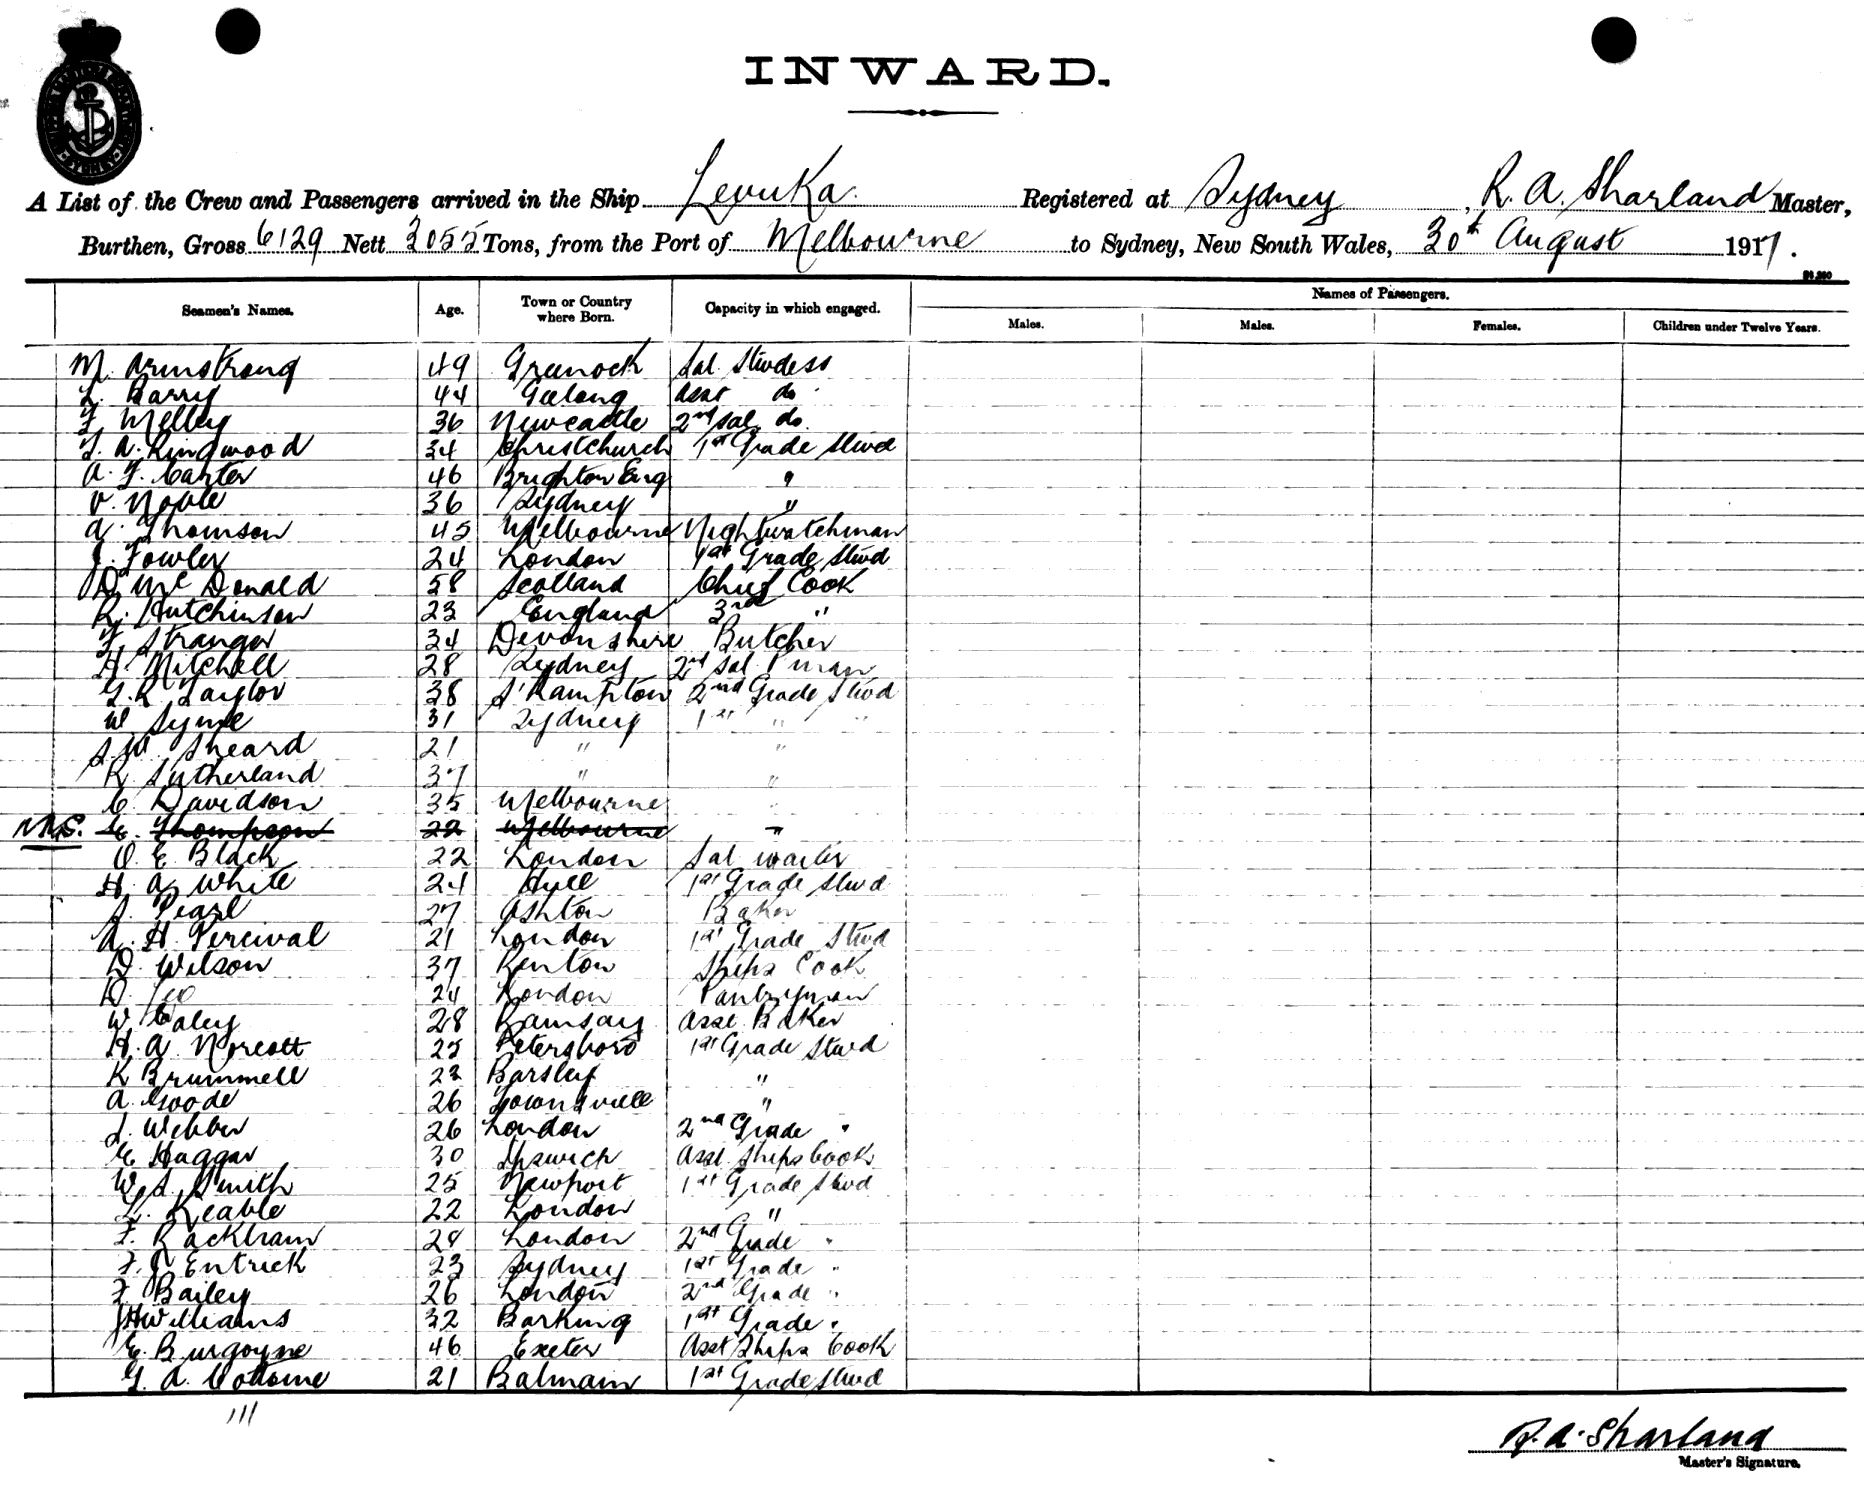 INWARD.
A List of the Crew and Passengers arrived in the Ship Levuka. Registered at Sydney, R. A. Sharland Master,
Burthen, Gross 6129 Nett 3055 Tons, from the Port of Melbourne to Sydney, New South Wales, 30th August 1917.
Seamen's Names. Age. Town or Country where Born. Capacity in which engaged. Names of Passengers.
Males. Males. Females. Children under Twelve Years.
M. Armstrong 49 Greenock Sal. Stwdess
L. Barry 44 Geelong Asst do
F. Melley 36 Newcastle 2nd Sal. do.
F. A. Ringwood 34 Christchurch 1st Grade Stwd
A. F. Carter 46 Brighton Eng "
V. Noble 36 Sydney "
A. Thomson 45 Melbourne Nightwatchman
J. Fowler 24 London 1st Grade Stwd
D. McDonald 58 Scotland Chief Cook
R. Hutchinson 23 England 3rd "
F. Stranger 34 Devonshire Butcher
H. Mitchell 28 Sydney 2nd Sal P'man
G. R. Taylor 38 S'Hampton 2nd Grade Stwd
W Syme 31 Sydney 1st " "
S. W. Sheard 21 " "
R. Sutherland 37 " "
C. Davidson 35 Melbourne "
N.O.S. E. Thompson 22 Melbourne "
O. E. Black 22 London Sal waiter
H. A. White 24 Hull 1st Grade Stwd
J. Pearl 27 Ashton Baker
A. H. Percival 21 London 1st Grade Stwd
D. Wilson 37 Renton Ships Cook
D. 24 London Pantryman
W. Caley 28 Ramsay Asst. Baker
H. A. Norcott 25 Petersboro 1st Grade Stwd
K Brummell 23 Barsley "
A. Goode 26 Townsville "
J. Webber 26 London 2nd Grade "
E. Haggar 30 Ipswich Asst Ships Cook
W. S. Smith 25 Newport 1st Grade Stwd
L. Keable 22 London "
F. Rackham 24 London 2nd Grade "
F. J. Entrick 23 Sydney 1st Grade "
F. Bailey 26 London 2nd Grade "
J H Williams 32 Barking 1st Grade "
E. Burgoyne 46 Exeter Asst Ships Cook
G. A. 21 Balmain 1st Grade Stwd
R. A. Sharland
Master's Signature.